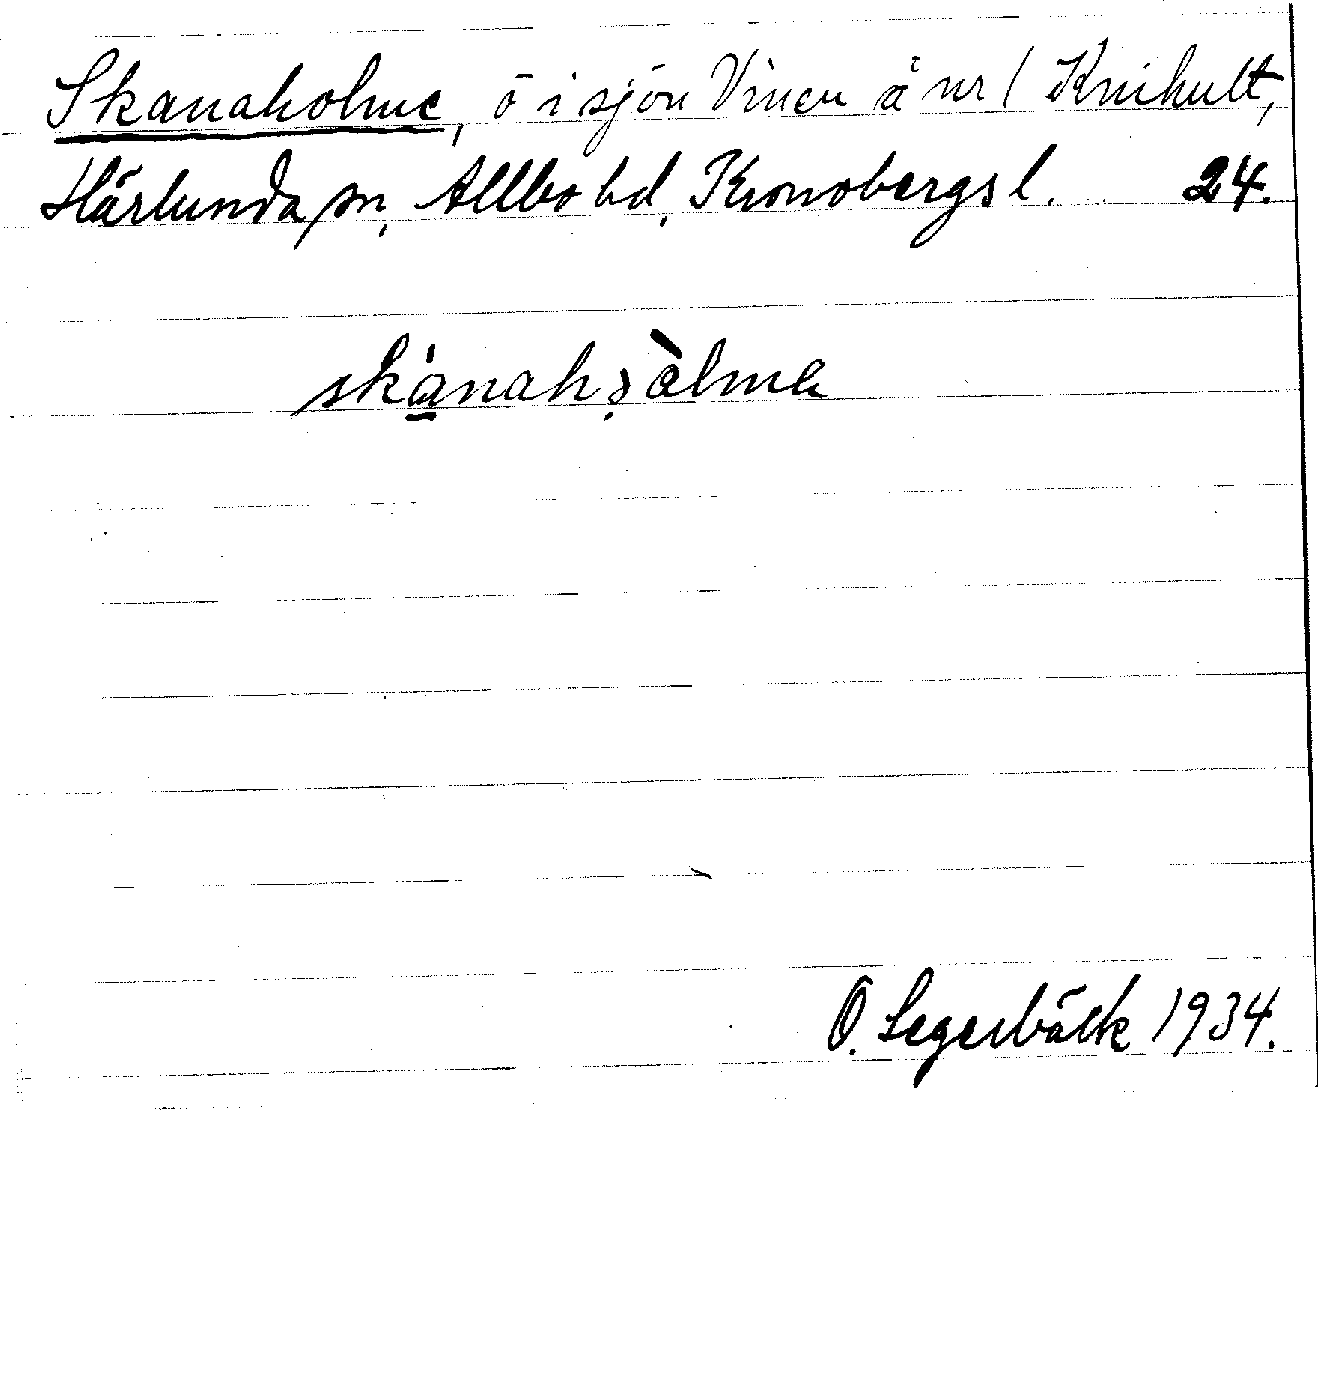 Skanaholme, ö i sjön Vinen å nr 1 Knihult,
Härlunda sn, Allbo hd, Kronobergs l. 24.
O. Segerbäck 1934.